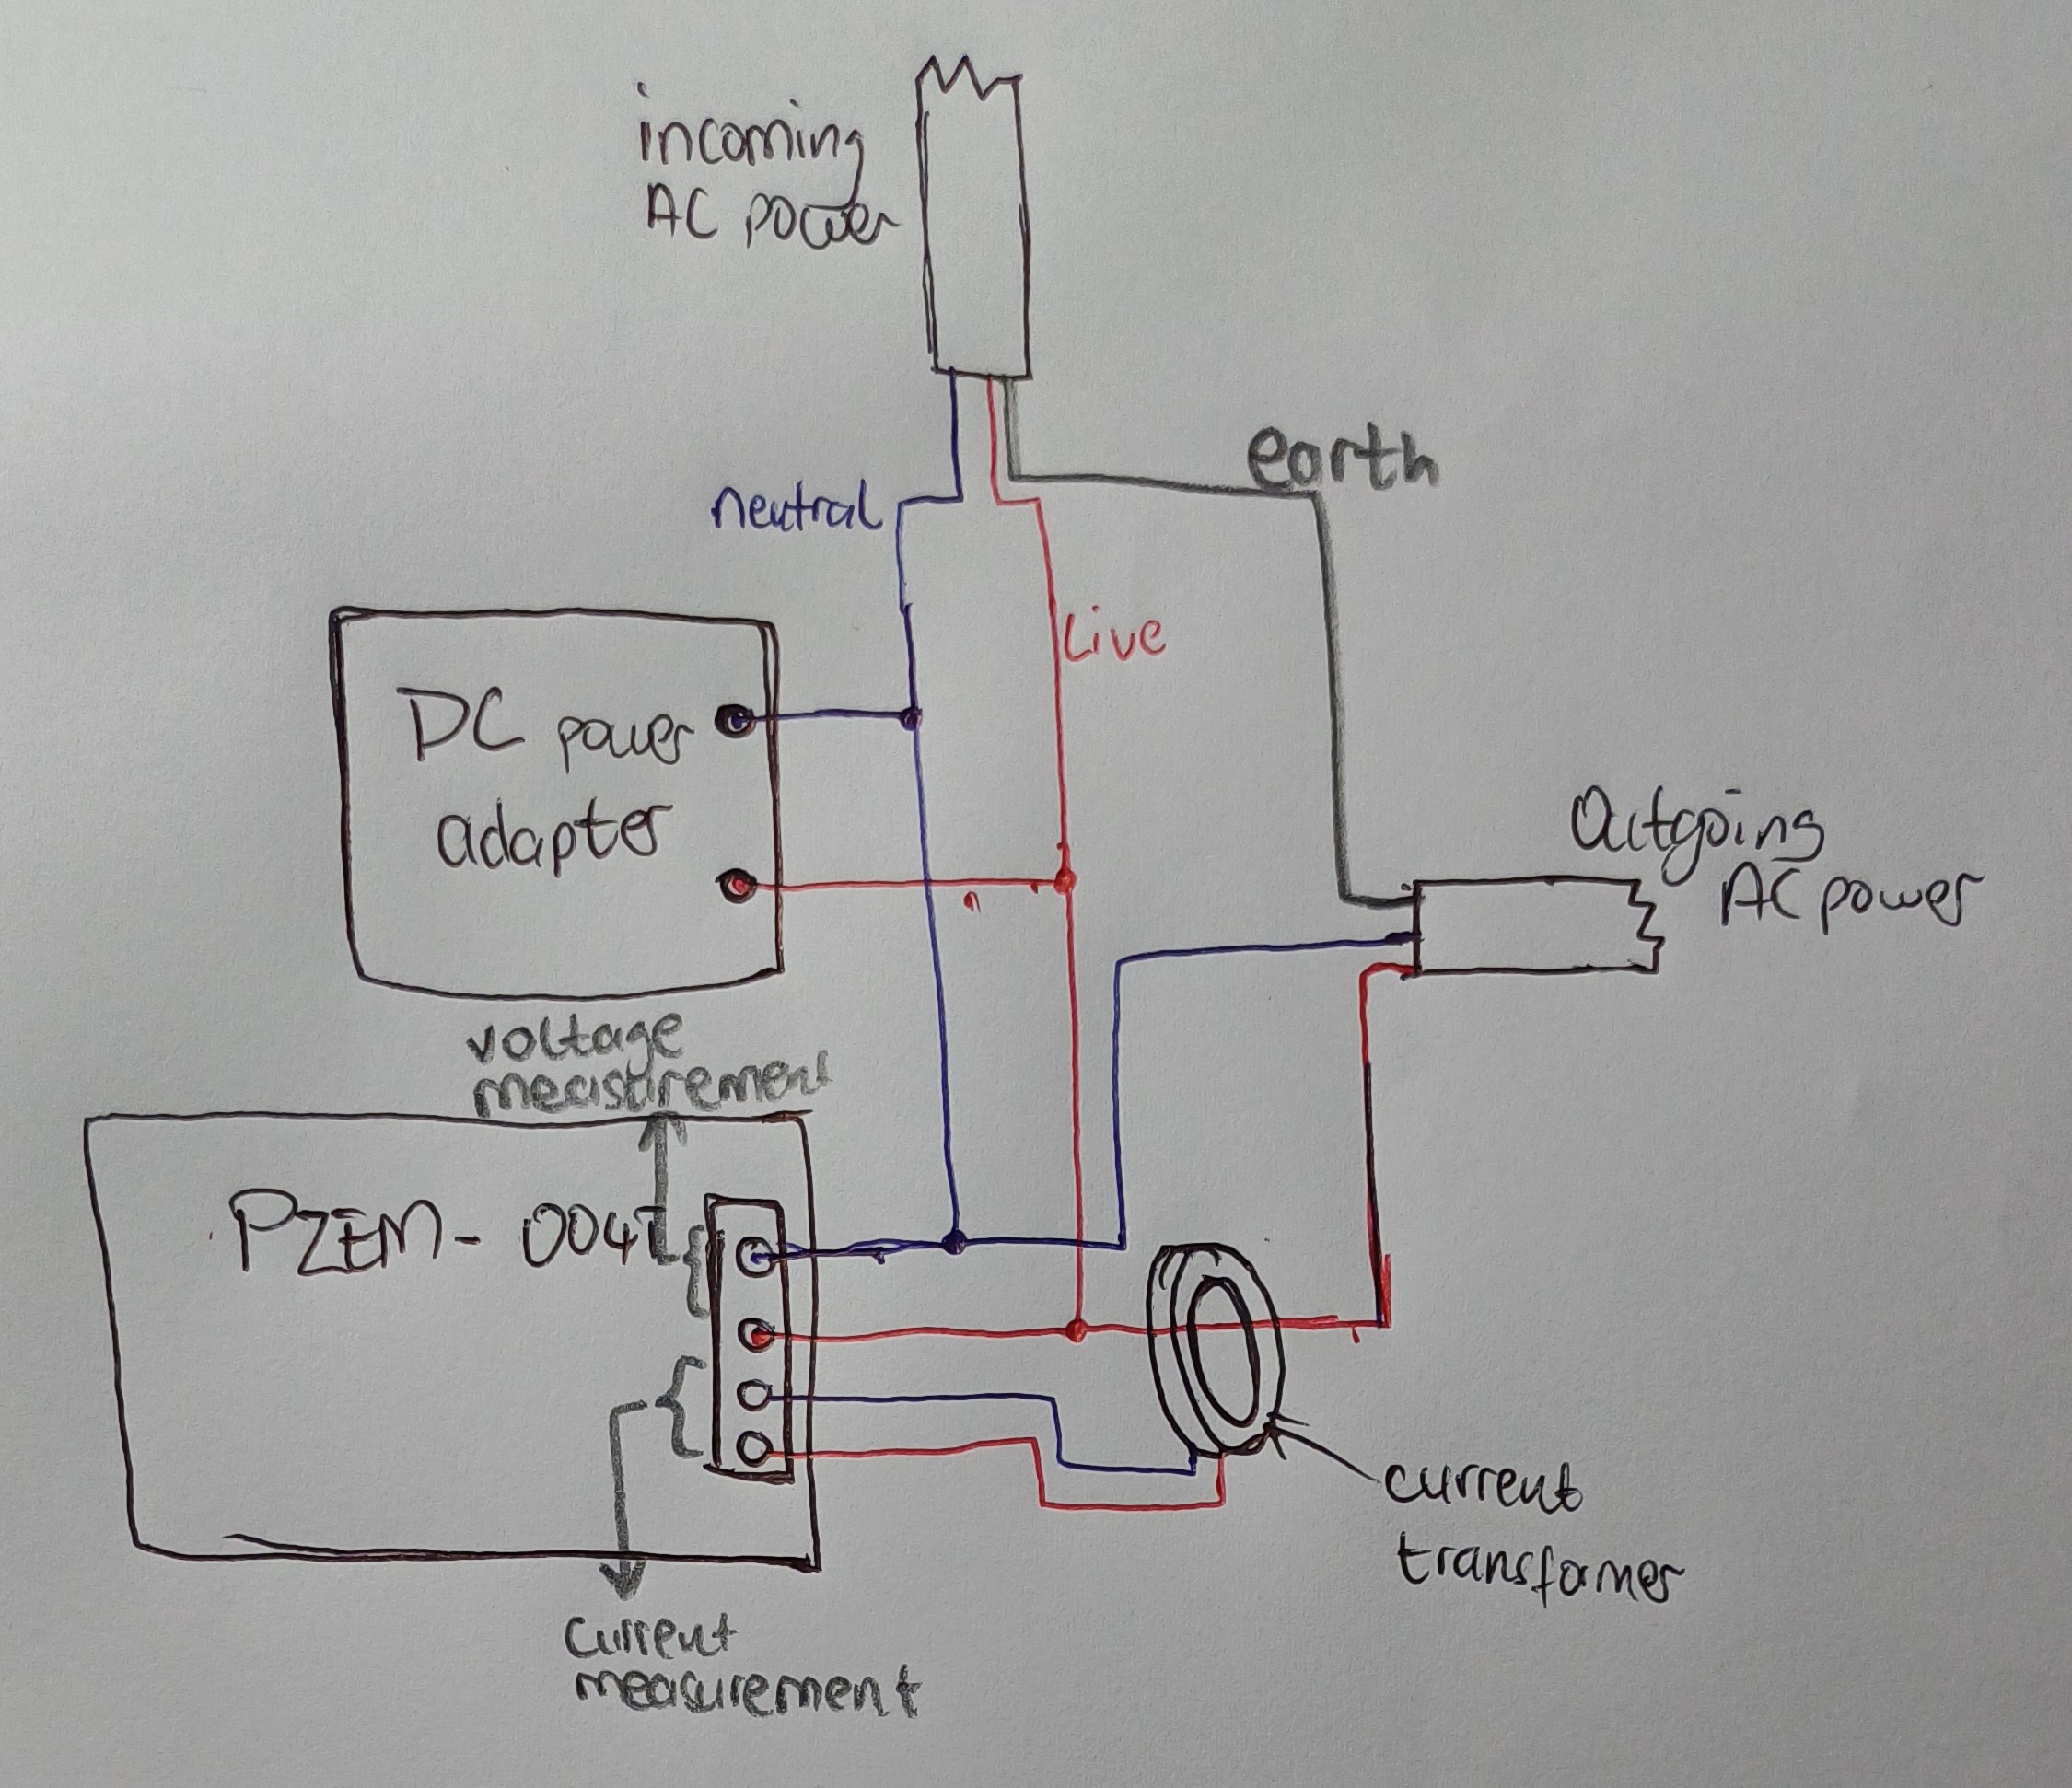 incoming
AC power
earth
neutral
Live
DC power
adapter
Outgoing
AC power
voltage
measurement
PZEM-004T
current
transformer
current
measurement